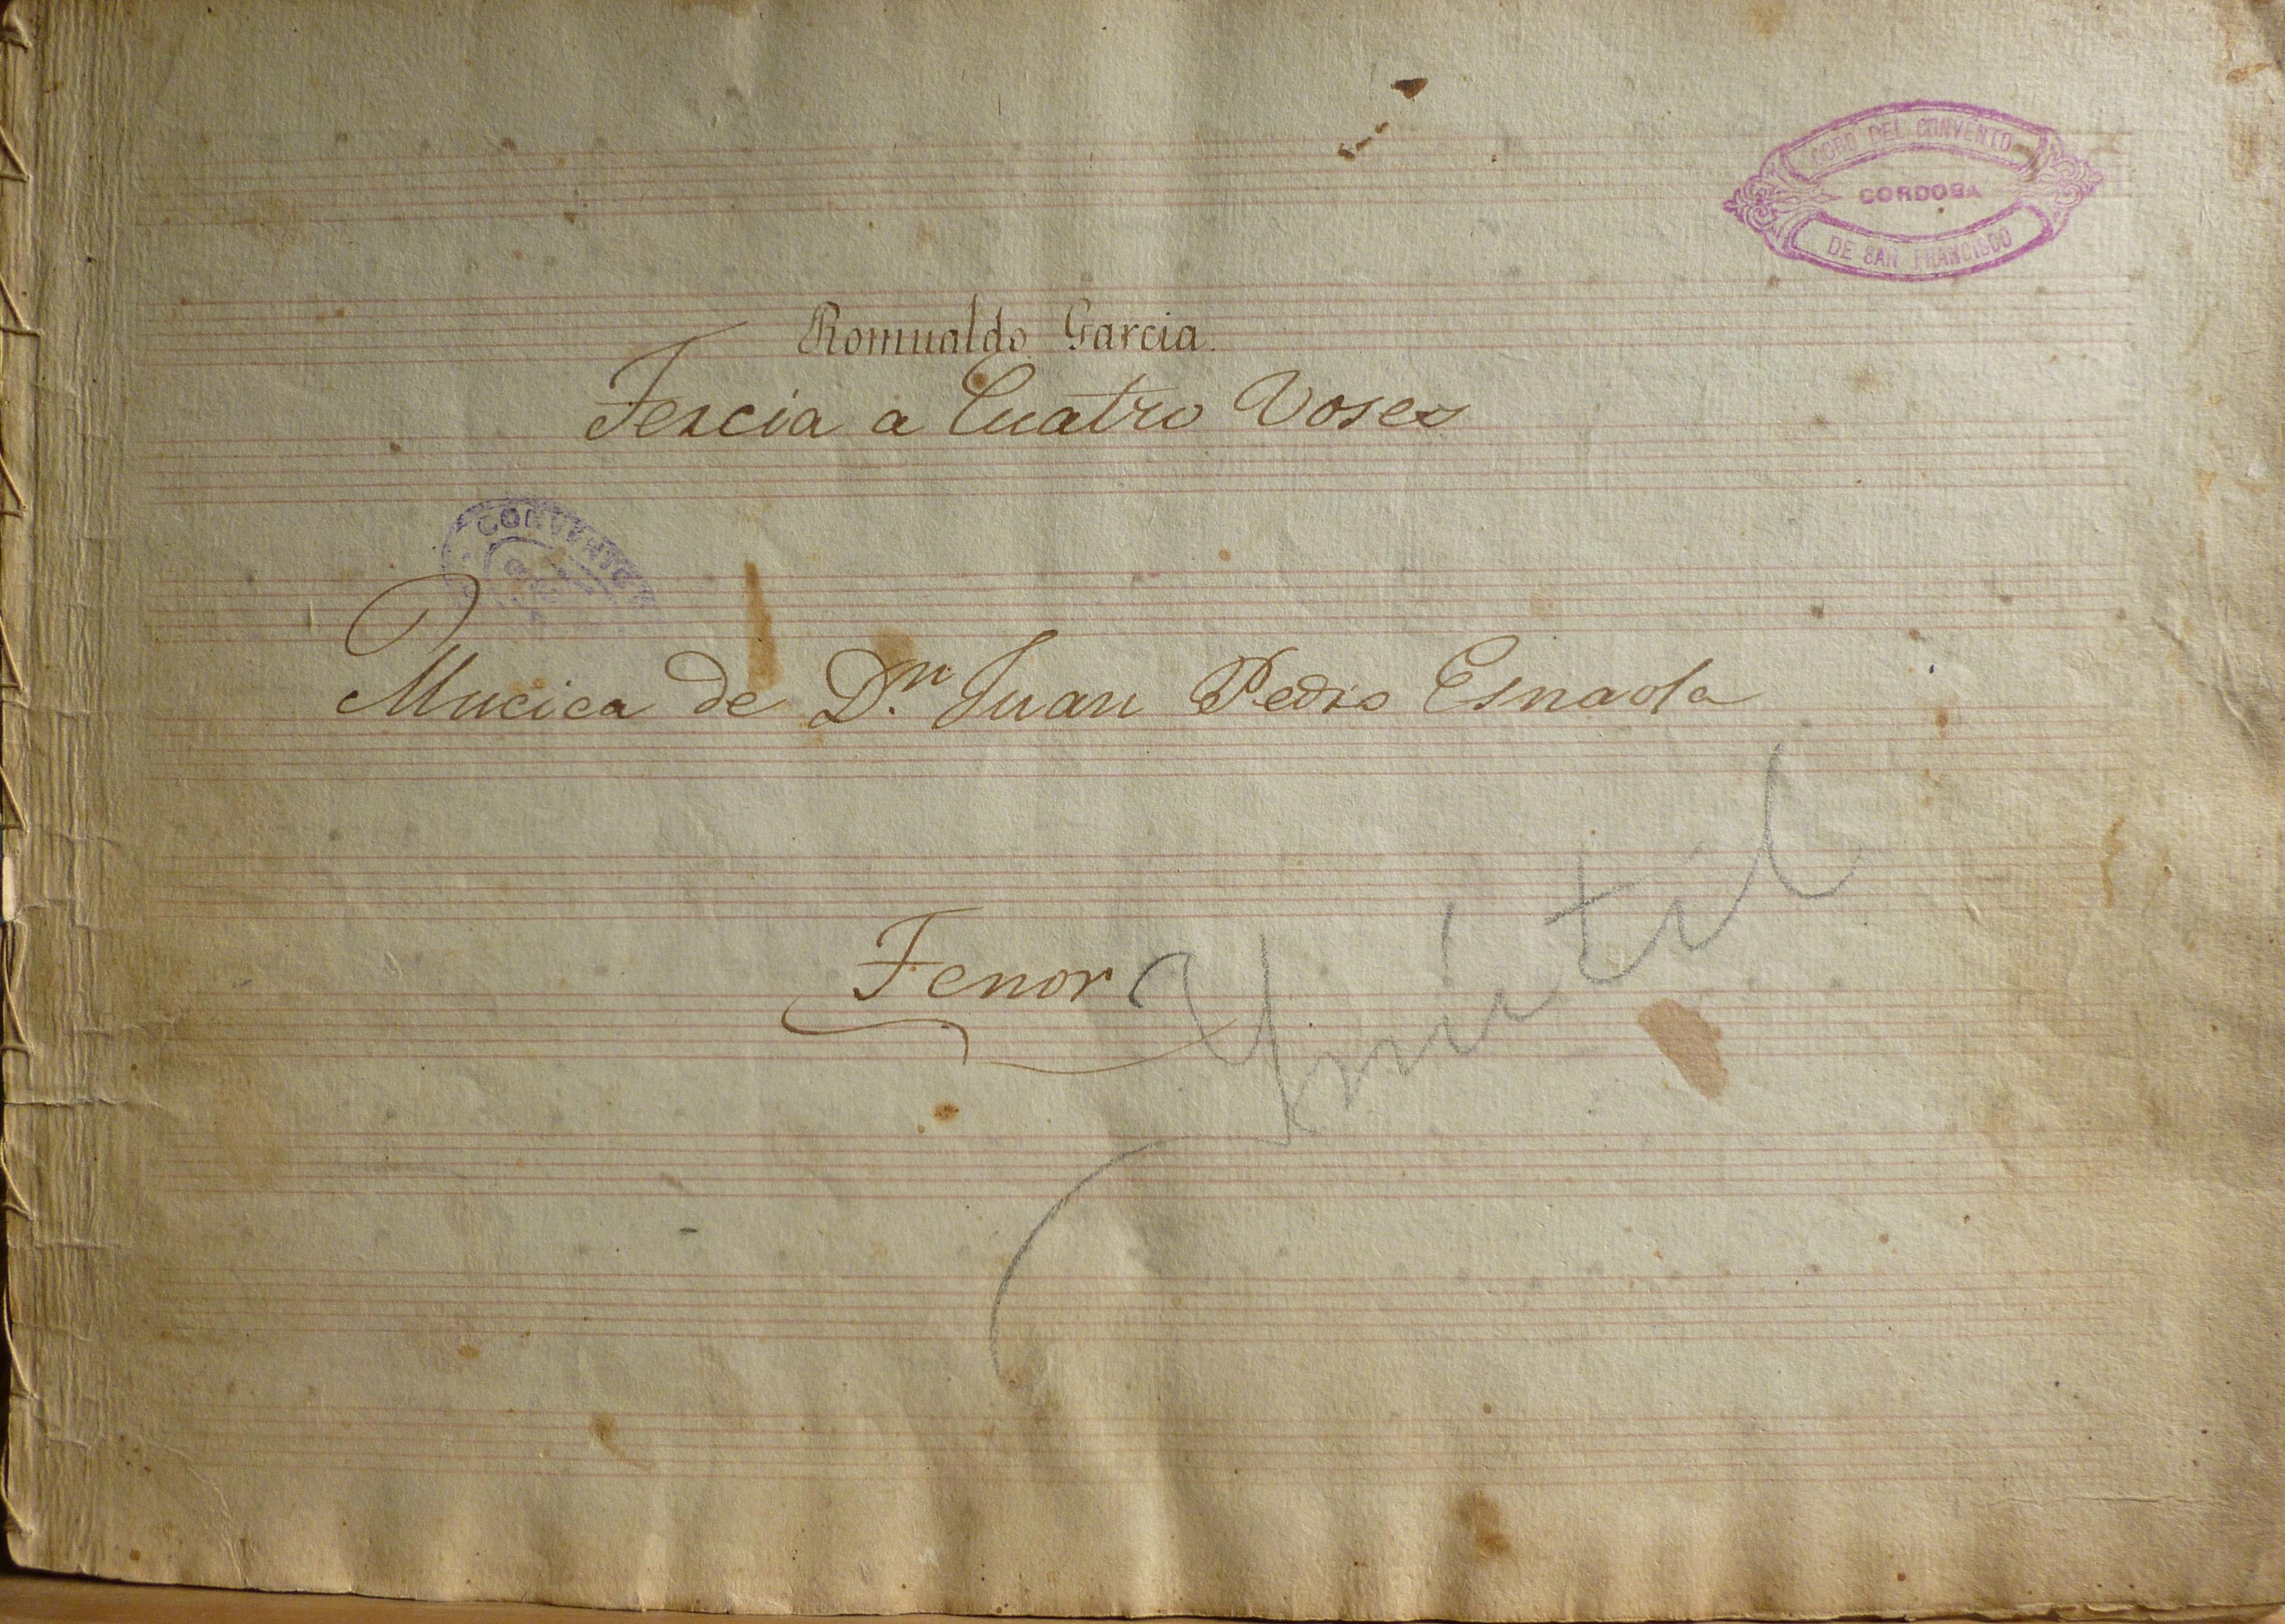 CORO DEL CONVENTO
CORDOBA
DE SAN FRANCISCO
Romualdo Garcia.
Tercia a Cuatro Voses
CONVENTO
Mucica de D.n Juan Pedro Esnaola
Tenor
Ynútil